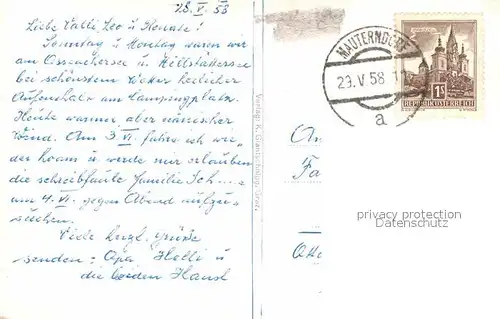 28. V. 58
Liebe Valli, Leo u Renate!
Sonntag u Montag waren wir
am Ossiachersee u Millstättersee
bei schönstem Wetter herrlicher
Aufenthalt am Campingplatz.
Heute warmer aber närrischer
Wind. Am 3 VI. fahre ich wie,
der hoam u werde mir erlauben
die schreibfaule Familie Sch....
am 4. VI. gegen Abend aufzu-
suchen.
Viele herzl. Grüße
senden: Opa Helli u
die beiden Hansl
Verlag: K.
MAUTERNDORF
29.V.58
a
REPUBLIK ÖSTERREICH
1S
An
Fa
privacy protection
Datenschutz